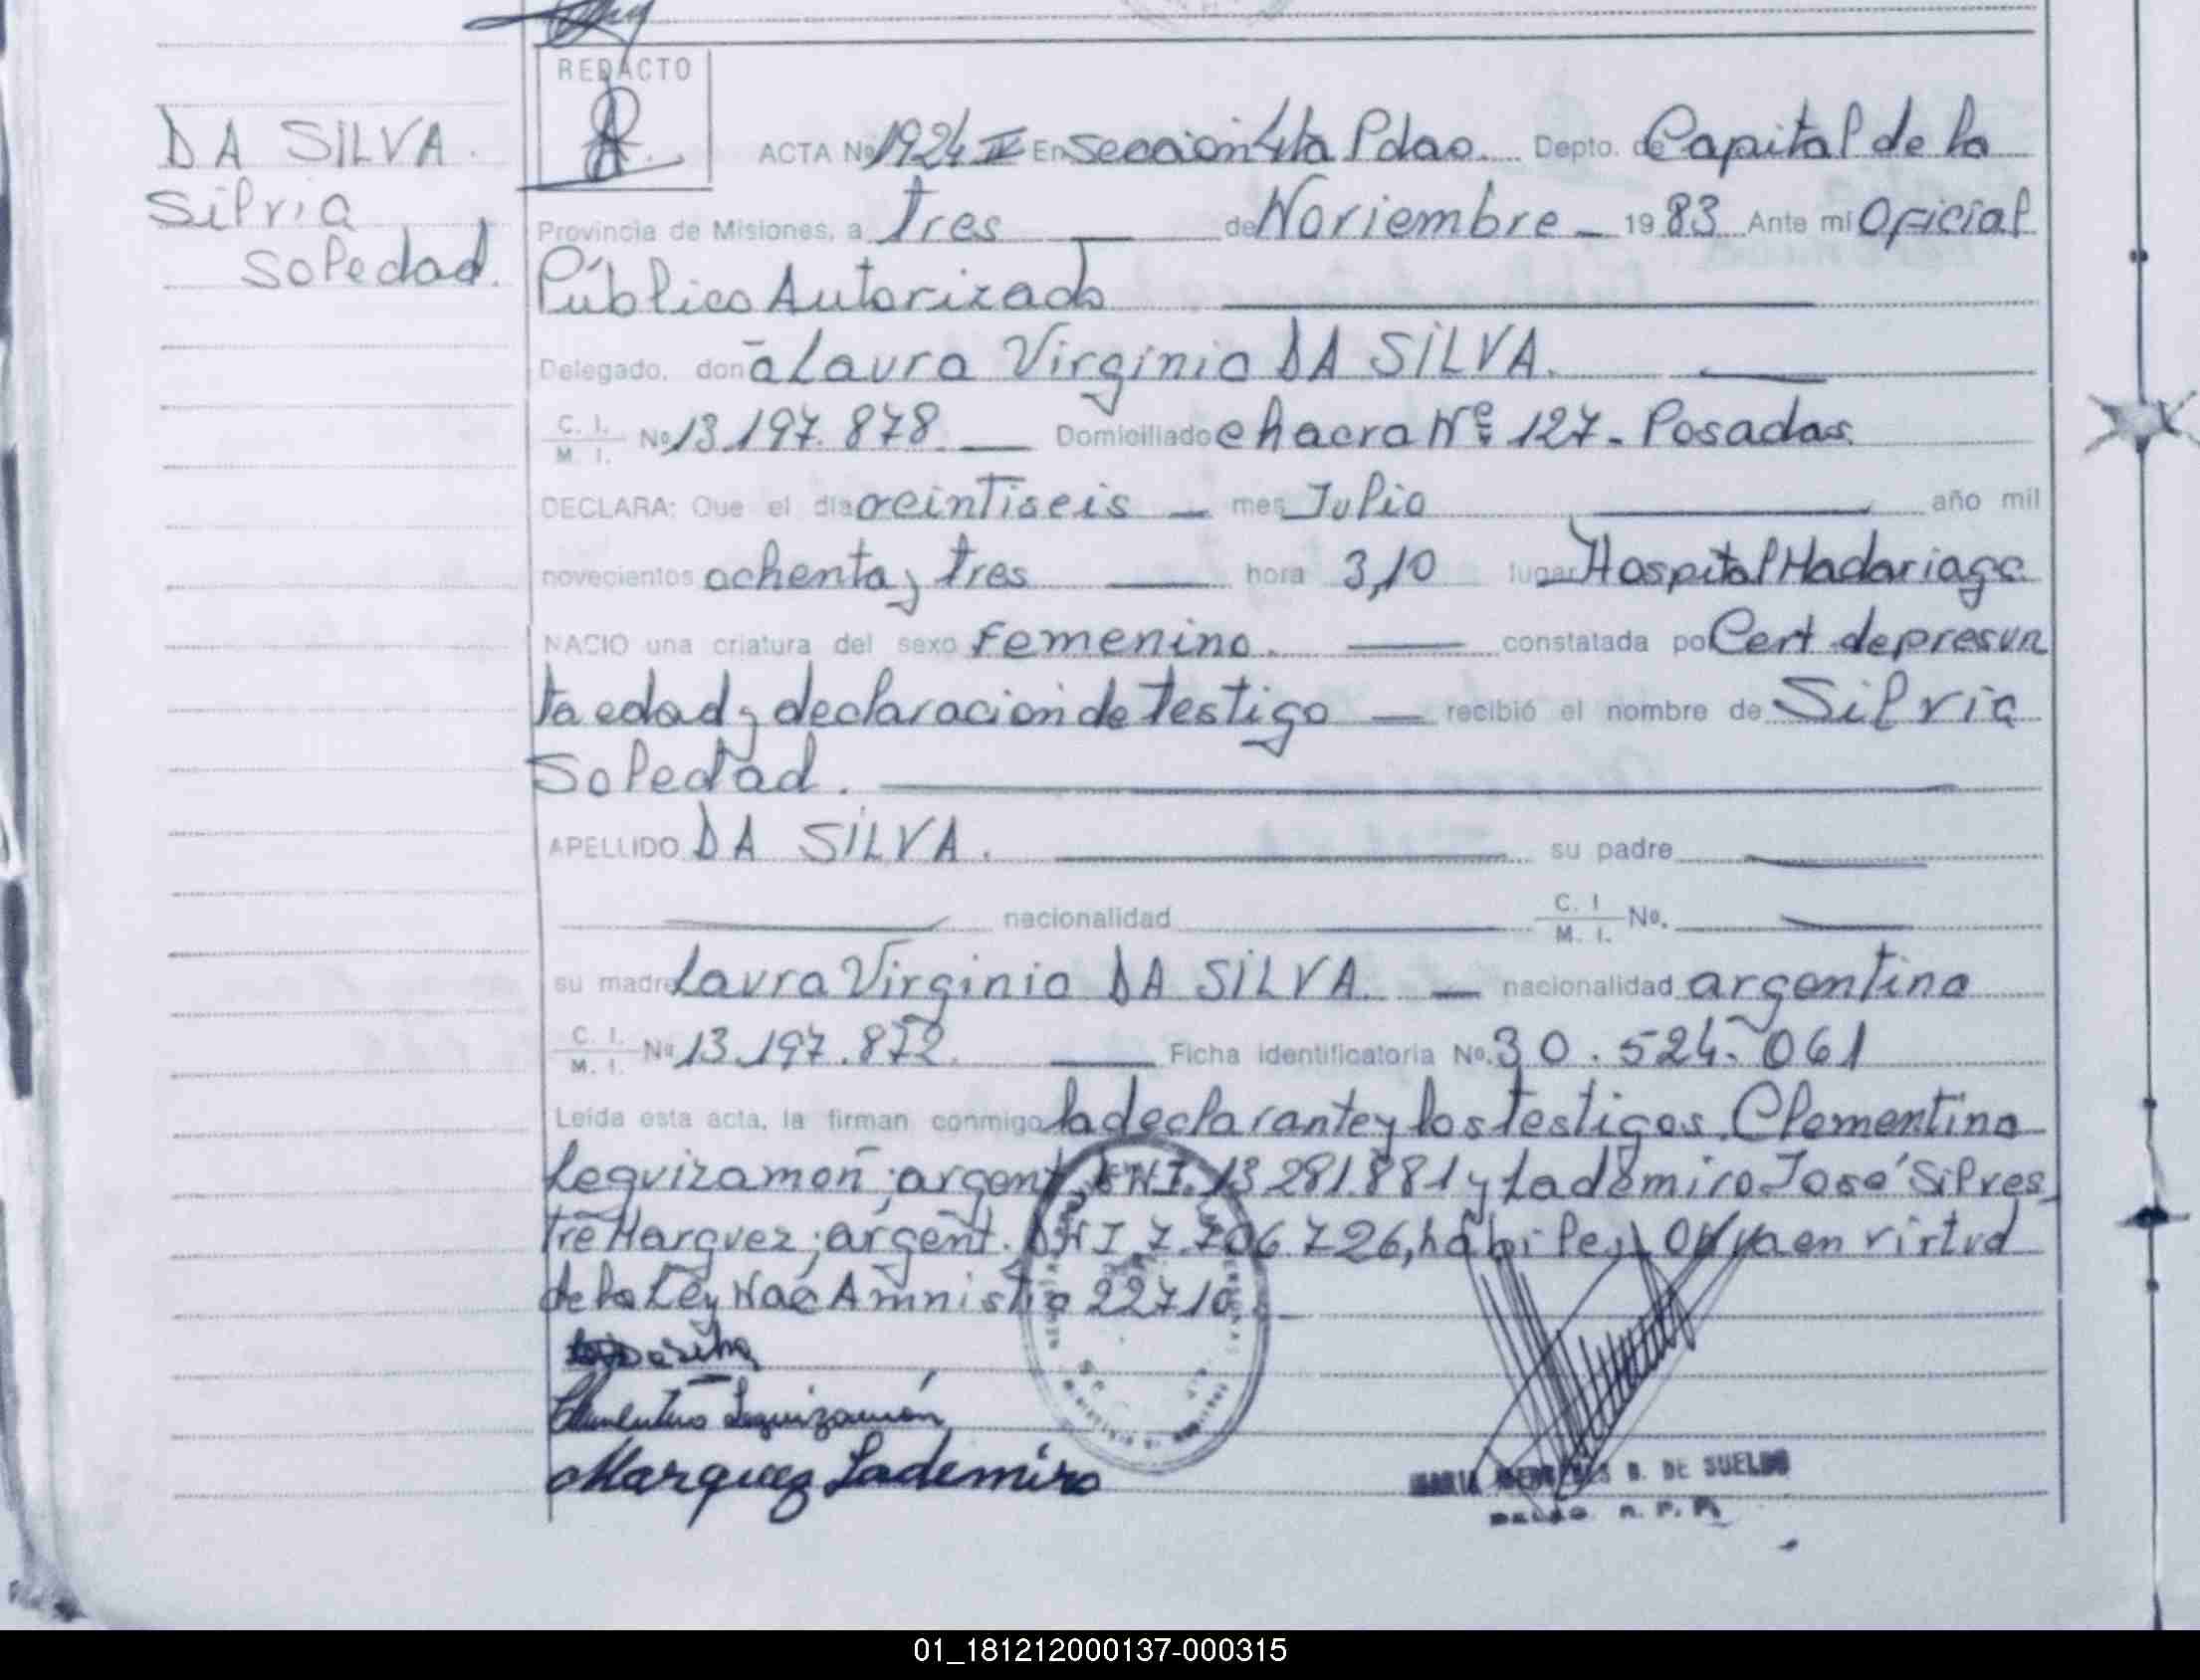 REDACTO
DA SILVA.
Silvia
Soledad.
ACTA Nº 1924 II En sección 4ta Pdas. Depto. de Capital de la
Provincia de Misiones, a tres de Noviembre - 1983 Ante mi Oficial
Público Autorizado
Delegado, don ã Laura Virginia DA SILVA.
C. I. / M. I. Nº 13.197.878 Domiciliado chacra Nº 127 - Posadas.
DECLARA: Que el día veintiseis - mes Julio año mil
novecientos ochenta y tres hora 3,10 lugar Hospital Madariaga
NACIO una criatura del sexo femenino. constatada por Cert. de presun
ta edad y declaración de testigo - recibió el nombre de Silvia
Soledad.
APELLIDO DA SILVA. su padre
nacionalidad C. I / M. I. Nº.
su madre Laura Virginia DA SILVA. - nacionalidad argentina
C. I. / M. I. Nº 13.197.872. Ficha identificatoria Nº. 30.524.061
Leída esta acta, la firman conmigo la declarante y los testigos. Clementina
Leguizamón; argent. DNI. 13281.881 y Lademiro José Silves
tre Marquez; argent. DNI 7.706.726, hábiles, en virtud
de la Ley Nac Amnistia 22710.
Clementina Leguizamón
Marquez Lademiro
MARIA MERCEDES B. DE SUELDO
01_181212000137-000315